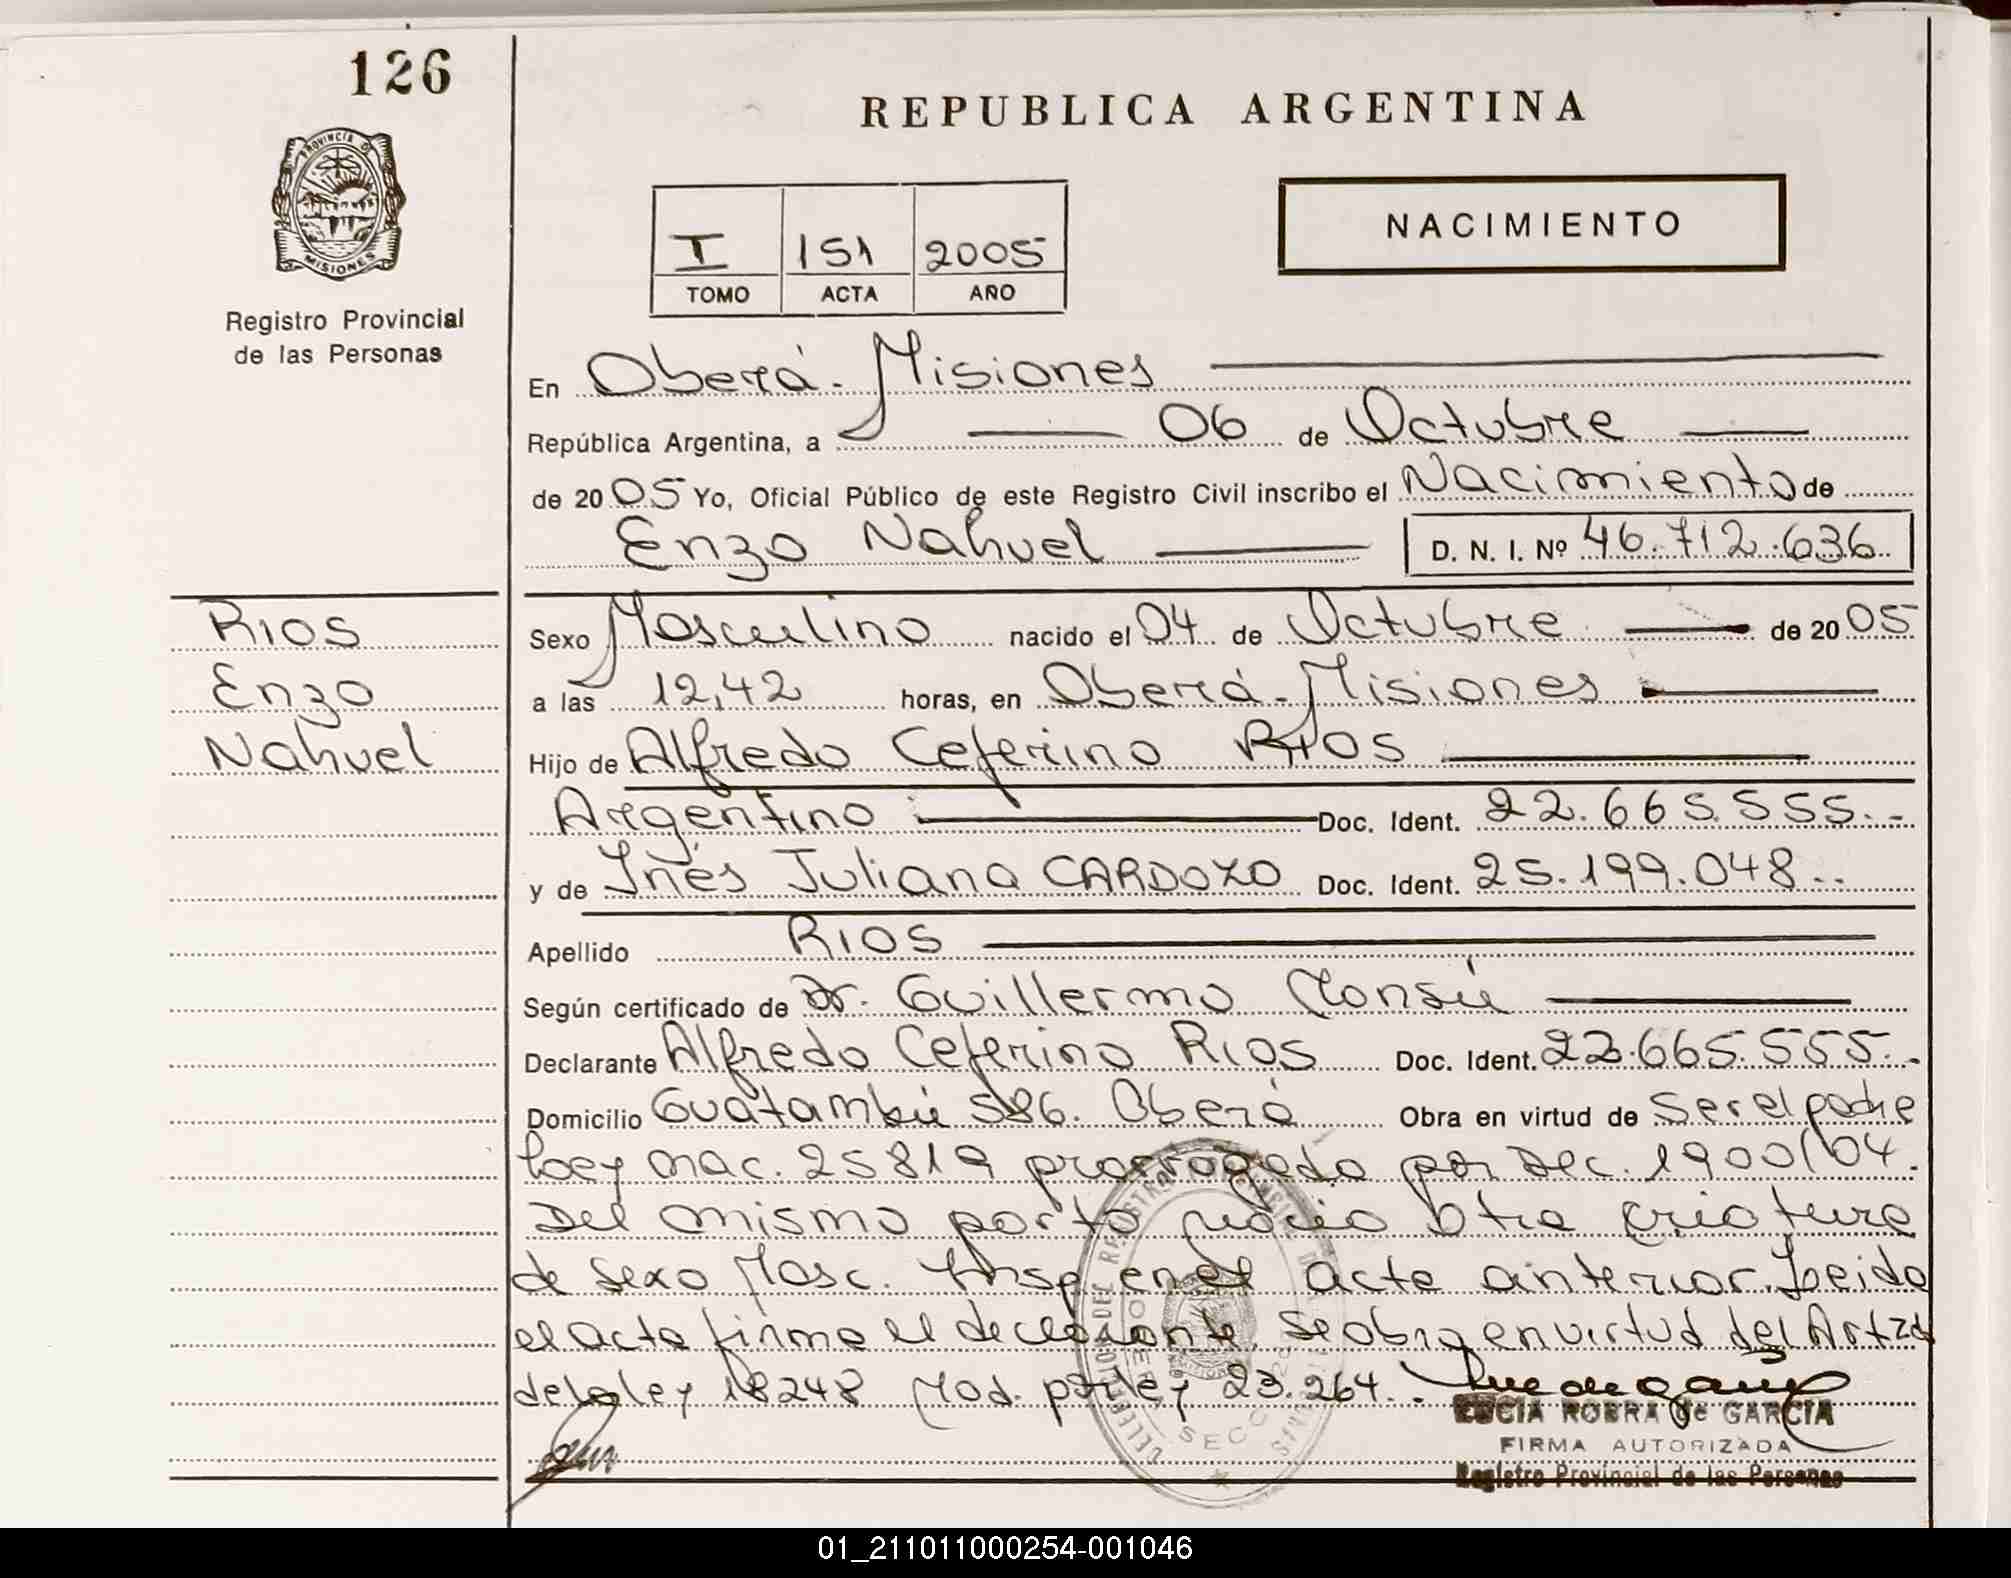 126
REPUBLICA ARGENTINA
PROVINCIA DE
MISIONES
Registro Provincial
de las Personas
NACIMIENTO
I 151 2005
TOMO ACTA AÑO
En Oberá - Misiones
República Argentina, a 06 de Octubre
de 2005 Yo, Oficial Público de este Registro Civil inscribo el Nacimiento de
Enzo Nahuel D. N. I. Nº 46.712.636
RIOS
Enzo
Nahuel
Sexo Masculino nacido el 04 de Octubre de 2005
a las 12,42 horas, en Oberá - Misiones
Hijo de Alfredo Ceferino RIOS
Argentino Doc. Ident. 22.665.555.-
y de Inés Juliana CARDOZO Doc. Ident. 25.199.048..
Apellido RIOS
Según certificado de Dr. Guillermo Monsú
Declarante Alfredo Ceferino RIOS Doc. Ident. 22.665.555..
Domicilio Guatambú 586. Oberá Obra en virtud de ser el padre
Ley Nac. 25819 prorrogada por Dec. 1900/04.
Del mismo parto nació otra criatura
de sexo Masc. Insp en el acta anterior. Leida
el acta firma el declarante. Se obra en virtud del Art 2d
de la ley 18248 Mod. por ley 23.264.
LUCIA ROBRA de GARCIA
FIRMA AUTORIZADA
Registro Provincial de las Personas
01_211011000254-001046